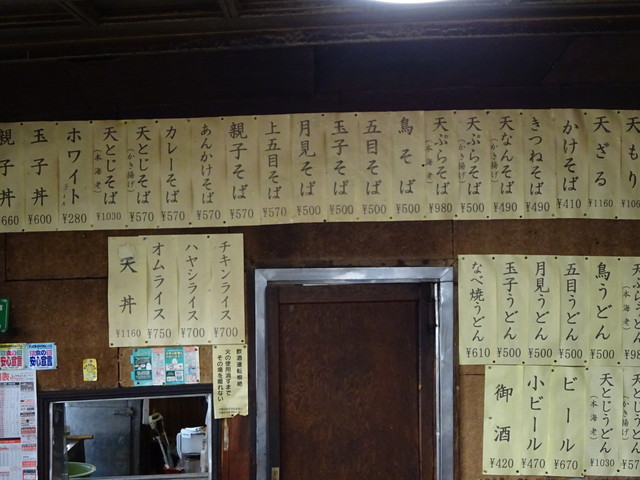 天もり
天ざる ¥1160
かけそば ¥410
きつねそば ¥490
天なんそば (かき揚げ) ¥490
天ぷらそば (かき揚げ) ¥500
天ぷらそば (本海老) ¥980
鳥そば ¥500
五目そば ¥500
玉子そば ¥500
月見そば ¥500
上五目そば ¥570
親子そば ¥570
あんかけそば ¥570
カレーそば ¥570
天とじそば (かき揚げ) ¥570
天とじそば (本海老) ¥1030
ホワイト ¥280
玉子丼 ¥600
親子丼 660
チキンライス ¥700
ハヤシライス ¥700
オムライス ¥750
天丼 ¥1160
天ぷらうどん (本海老) ¥98
鳥うどん ¥500
五目うどん ¥500
月見うどん ¥500
玉子うどん ¥500
なべ焼うどん ¥610
天とじうどん (かき揚げ) ¥57
天とじうどん (本海老) ¥1030
ビール ¥670
小ビール ¥470
御酒 ¥420
飲酒運転根絶
火の使用消すまで
その場を離れない
安心宣言
安心宣言